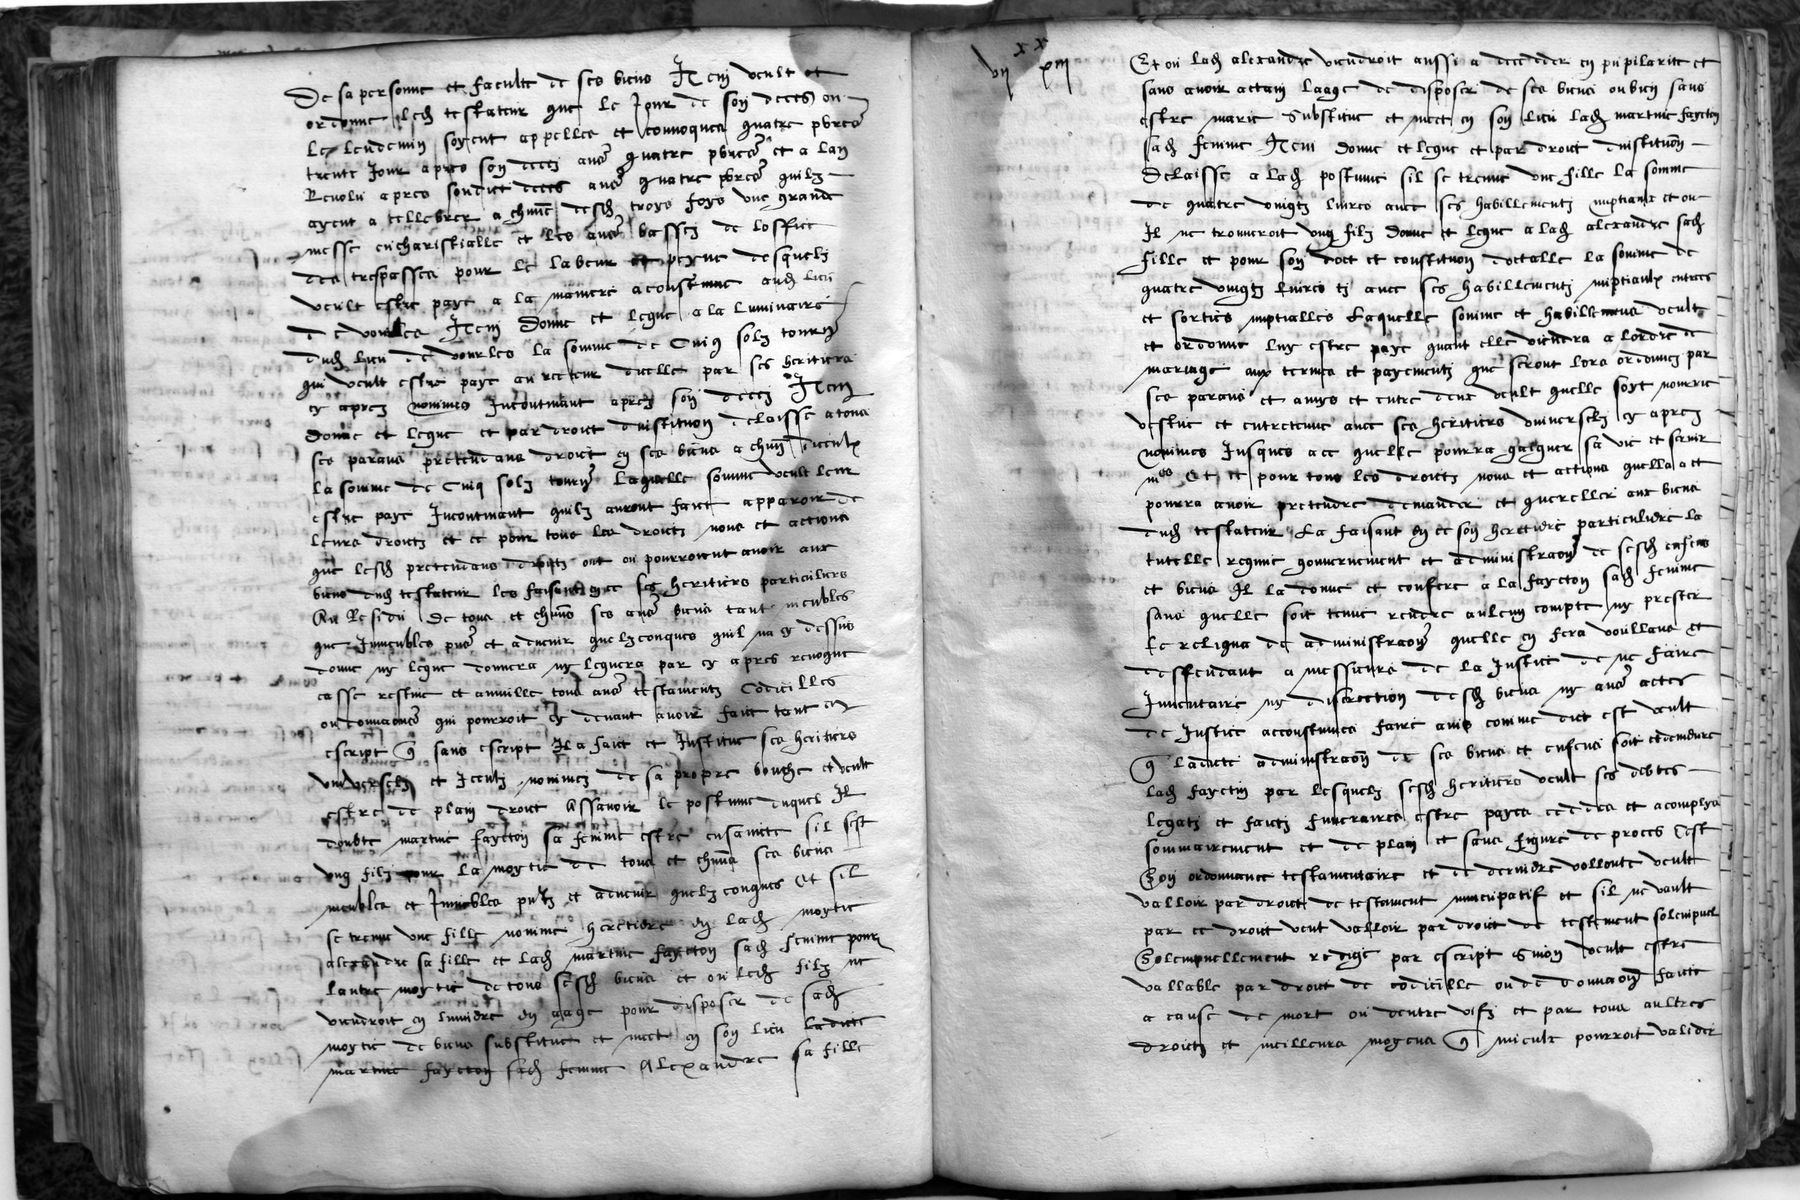 De sa personne et faculte de ses biens Item veult et
ordonne led testateur que le Jour de son deces ou
le lendemin soyent appelles et convoques quatre pbres
trente Jour apres son deces aues quatre pbres et a lan
Revolu apres sondict deces aues quatre pbres quilz
ayent a cellebrer a chune desd troys foys une grande
messe eucharistialle et les aues basses de loffice
des trespasses pour le labeur et peyne desquelz
veult estre paye a la maniere acoustumee aud lieu
de vourles Item donne et legue a la luminaire
dud lieu de vourles la somme de Cinq solz tourn
qui veult estre paye au recteur dicelle par ses heritiers
cy apres nommes Incontinant apres son deces Item
donne et legue et par droit dinstitution delaisse a tous
ses parans pretendans droict en ses biens a chun diceulx
la somme de Cinq solz tourn laquelle somme veult leur
estre paye Incontinant quilz auront faict apparoir de
leurs droictz et ce pour tous les droictz noms et actions
que lesd pretendans droictz ont ou pourroient avoir aux
biens dud testateur les faisant en ce ses heritiers particuliers
Au Residu de tous et chuns ses aues biens tant meubles
que Inmeubles pns et advenir quelzconques quil na cy dessus
donne ny legue donnera ny leguera par cy apres revoque
casse restue et annulle tous aues testamentz Codicilles
ou donnaons qui pourroit cy devant avoir faict tant en
escript q sans escript Il a faict et Institue ses heritiers
universelz et Iceulx nommez de sa propre bouche et veult
estre de plain droit Assavoir le postume duquel Il
doubte martine fayeton sa femme estre ensaincte sil sest
ung filz pour la moytie de tous et chuns ses biens
meubles et Inmeubles pntz et advenir quelzconques Et sil
se treuve une fille nomme heretiere en lad moytie
alexandre sa fille et lad martine fayeton sad femme pour
lautre moytie de tous sesd biens et ou led filz ne
viendroit en lumiere en aage pour disposer de sad
moytie de biens substitue et mect en son lieu ladicte
martine fayeton sad femme Alexandre sa fille
vii xx xiii
Et ou lad alexandre viendroit aussi a decedder en pupilarite et
sans avoir actain laage de disposer de ses biens ou bien sans
estre marie Substitue et mect en son lieu lad martine fayeton
sad femme Item donne et legue et par droict dinstitution
delaisse a lad postume sil se treuve une fille la somme
de quatre vingtz livres avec ses habillementz nuptiaulx et ou
Il se trouveroit ung filz donne et legue a lad alexandre sad
fille et pour son doct et constitution dotalle la somme de
quatre vingtz livres tz avec ses habillementz nuptiaulx entrees
et sorties nuptialles Laquelle somme et habillemens veult
et ordonne luy estre paye quant elle viendra a lordre de
mariage aux termes et payementz que seront lors ordonnes par
ses parans et amys et entre deux veult quelle soyt nourrie
vestue et entretenue avec ses heritiers universelz cy apres
nommes Jusques a ce quelle pourra gaigner sa vie et servir
mes Et ce pour tous les droictz noms et actions quelle a et
pourra avoir pretendre demander et quereller aux biens
dud testateur La faisant en ce son heretiere particuliere la
tutelle regime gouvernement et administraon de sesd enfens
et biens Il la donne et confere a la fayeton sad femme
sans quelle soit tenue rendre aulcun compte ny prester
le reliqua de administraon quelle en fera voullans et
deffendant a messieurs de la Justice de ne faire
Inventaire ny discretion desd biens ny aues actes
de Justice accoustumes faire ains comme dict est veult
q ladicte administraon de ses biens et enfens soit et demeure
lad fayeton par lesquelz sesd heritiers veult ses debtes
legatz et faictz funeraires estre payes ceddes et acomplys
sommairement et de plain et sans figure de proces Cest
Son ordonnance testamentaire et de derniere vollonte veult
valloir par droict de testament nuncupatif et sil ne vault
par ce droict veut valloir par droict de testement solempnel
Solempnellement redige par escript Sinon veult estre
vallable par droict de codicille ou de donnaon faicte
a cause de mort ou dentre vifz et par tous aultres
droictz et meilleurs moyens q mieulx pourroit valider